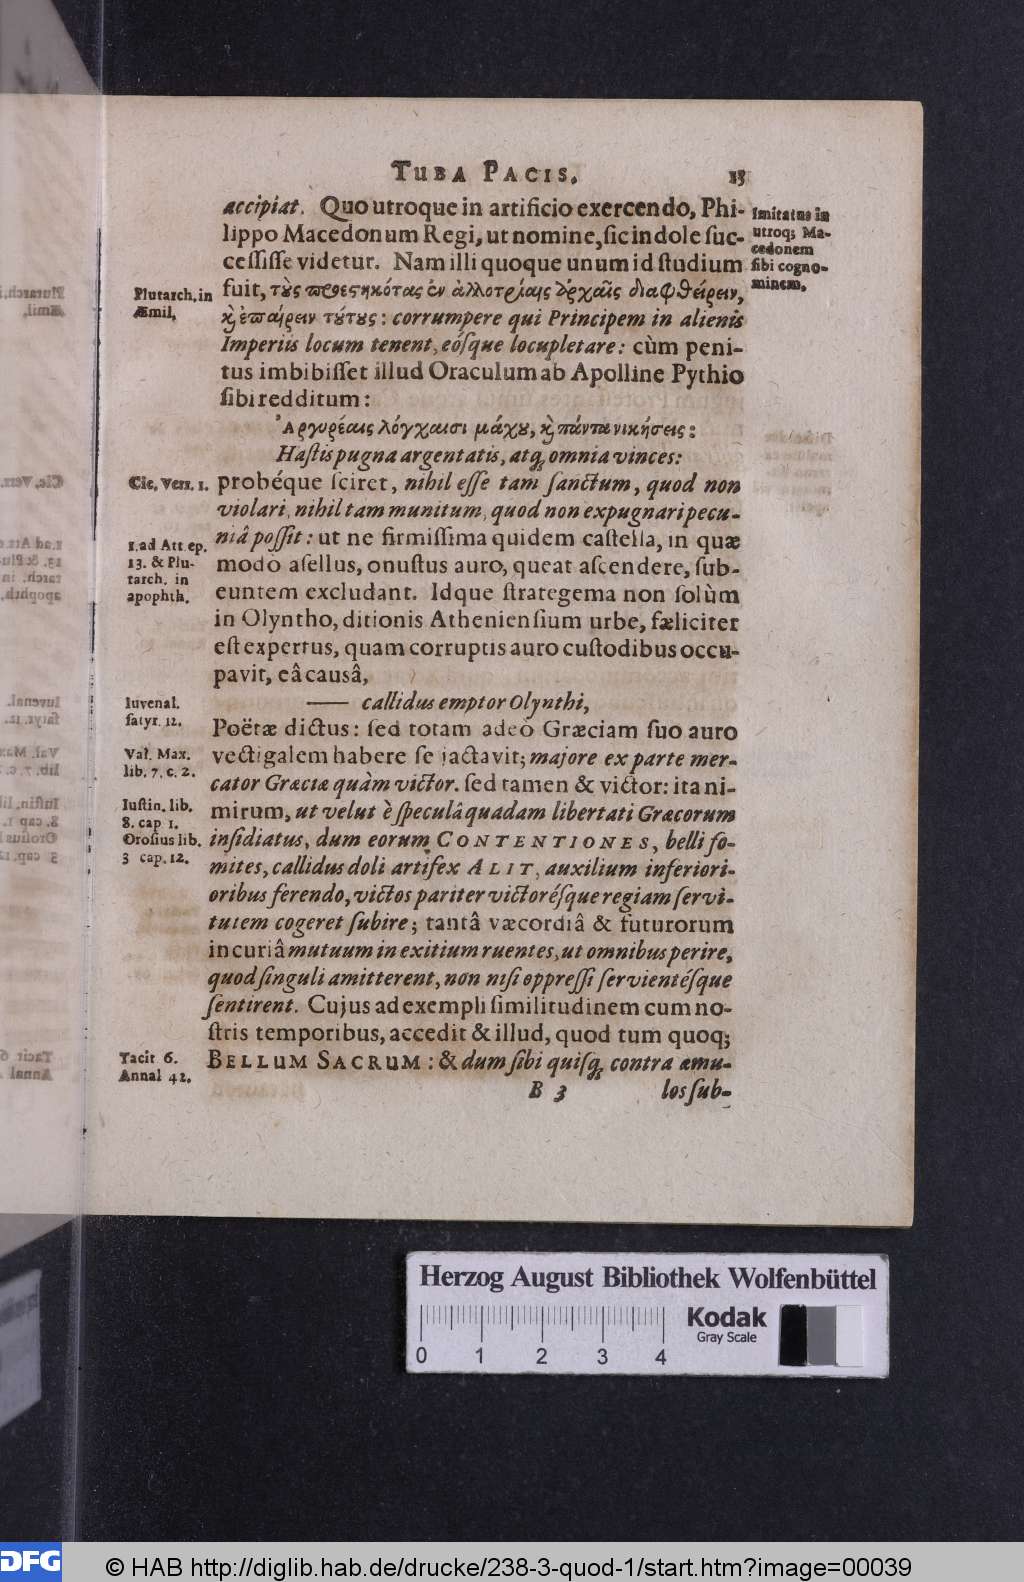 TUBA PACIS. 15
accipiat. Quo utroque in artificio exercendo, Phi-
lippo Macedonum Regi, ut nomine, sic indole suc-
cessisse videtur. Nam illi quoque unum id studium
fuit, τȣ̀ς προεστηκότας ἐν ἀλλοτρίαις ἀρχαῖς διαφθείρειν,
ϗ̀ ἐπαίρειν τȣ́τȣς: corrumpere qui Principem in alienis
Imperiis locum tenent, eósque locupletare: cùm peni-
tus imbibisset illud Oraculum ab Apolline Pythio
sibi redditum:
Ἀργυρέαις λόγχαισι μάχȣ, ϗ̀ πάντα νικήσεις:
Hastis pugna argentatis, atq; omnia vinces:
probéque sciret, nihil esse tam sanctum, quod non
violari, nihil tam munitum, quod non expugnari pecu-
niâ possit: ut ne firmissima quidem castella, in quæ
modò asellus, onustus auro, queat ascendere, sub-
euntem excludant. Idque strategema non solùm
in Olyntho, ditionis Atheniensium urbe, fæliciter
est expertus, quam corruptis auro custodibus occu-
pavit, eâ causâ,
—— callidus emptor Olynthi,
Poëtæ dictus: sed totam adeò Græciam suo auro
vectigalem habere se jactavit; majore ex parte mer-
cator Græciæ quàm victor. sed tamen & victor: ita ni-
mirum, ut velut è speculâ quadam libertati Græcorum
insidiatus, dum eorum CONTENTIONES, belli fo-
mites, callidus doli artifex ALIT, auxilium inferiori-
oribus ferendo, victos pariter victorésque regiam servi-
tutem cogeret subire; tantâ væcordiâ & futurorum
incuriâ mutuum in exitium ruentes, ut omnibus perire,
quod singuli amitterent, non nisi oppressi servientésque
sentirent. Cujus ad exempli similitudinem cum no-
stris temporibus, accedit & illud, quod tum quoq;
BELLUM SACRUM: & dum sibi quisq; contra æmu-
B 3 los sub-
Imitatus in
utroq; Ma-
cedonem
sibi cogno-
minem.
Plutarch. in
Æmil.
Cic. Verr. 1.
1. ad Att. ep.
13. & Plu-
tarch. in
apophth.
Iuvenal.
satyr. 12.
Val. Max.
lib. 7. c. 2.
Iustin. lib.
8. cap 1.
Orosius lib.
3 cap. 12.
Tacit 6.
Annal 42.
Herzog August Bibliothek Wolfenbüttel
Kodak
Gray Scale
0 1 2 3 4
DFG © HAB http://diglib.hab.de/drucke/238-3-quod-1/start.htm?image=00039